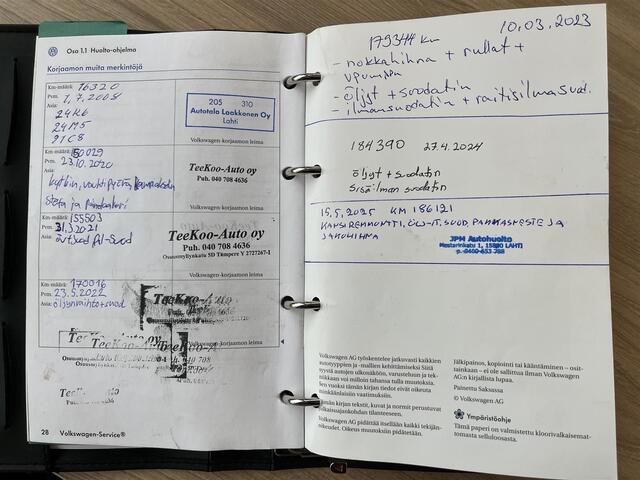 Osa 1.1 Huolto-ohjelma
Korjaamon muita merkintöjä
Km-määrä: 16320
Pvm. 1.7.2008
Asia:
24K6
24M5
21C8
205 310
Autotalo Laakkonen Oy
Lahti
Volkswagen-korjaamon leima
Km-määrä: 150029
Pvm. 23.10.2020
Asia:
kytkin, vauhtipyörä,
TeeKoo-Auto oy
Puh. 040 708 4636
Volkswagen-korjaamon leima
Km-määrä: 155503
Pvm. 31.3.2021
Asia:
TeeKoo-Auto oy
Puh. 040 708 4636
Osuusmyllynkatu 5D Tampere Y 2727267-1
Volkswagen-korjaamon leima
Km-määrä: 170016
Pvm. 23.5.2022
Asia:
öljynvaihto+suod
TeeKoo-Auto
TeeKoo-Auto oy
Volkswagen-korjaamon leima
28 Volkswagen-Service®
179344 km 10.03.2023
- nokkahihna + rullat +
v.pumppu
- öljyt + suodatin
- ilmansuodatin + raitisilmasuod.
184390 27.4.2024
öljyt + suodatin
sisäilman suodatin
15.5.2025 KM 186121
KANSIREMONTTI, ÖLJYT, SUOD, PAKKASNESTE JA
JAKOHIHNA
JPM Autohuolto
Mestarinkatu 1, 15800 LAHTI
p. 0400-653 788
Volkswagen AG työskentelee jatkuvasti kaikkien
autotyyppien ja -mallien kehittämiseksi Siitä
syystä autojen ulkonäköön, varusteluun ja tek-
niikkaan voi milloin tahansa tulla muutoksia.
Sen vuoksi tämän kirjan tiedot eivät oikeuta
minkäänlaisiin vaatimuksiin.
Tämän kirjan tekstit, kuvat ja normit perustuvat
julkaisuajankohdan tilanteeseen.
Volkswagen AG pidättää itsellään kaikki tekijän-
oikeudet. Oikeus muutoksiin pidätetään.
Jälkipainos, kopiointi tai kääntäminen – osit-
tainkaan – ei ole sallittua ilman Volkswagen
AG:n kirjallista lupaa.
Painettu Saksassa
© Volkswagen AG
Ympäristöohje
Tämä paperi on valmistettu kloorivalkaisemat-
tomasta selluloosasta.